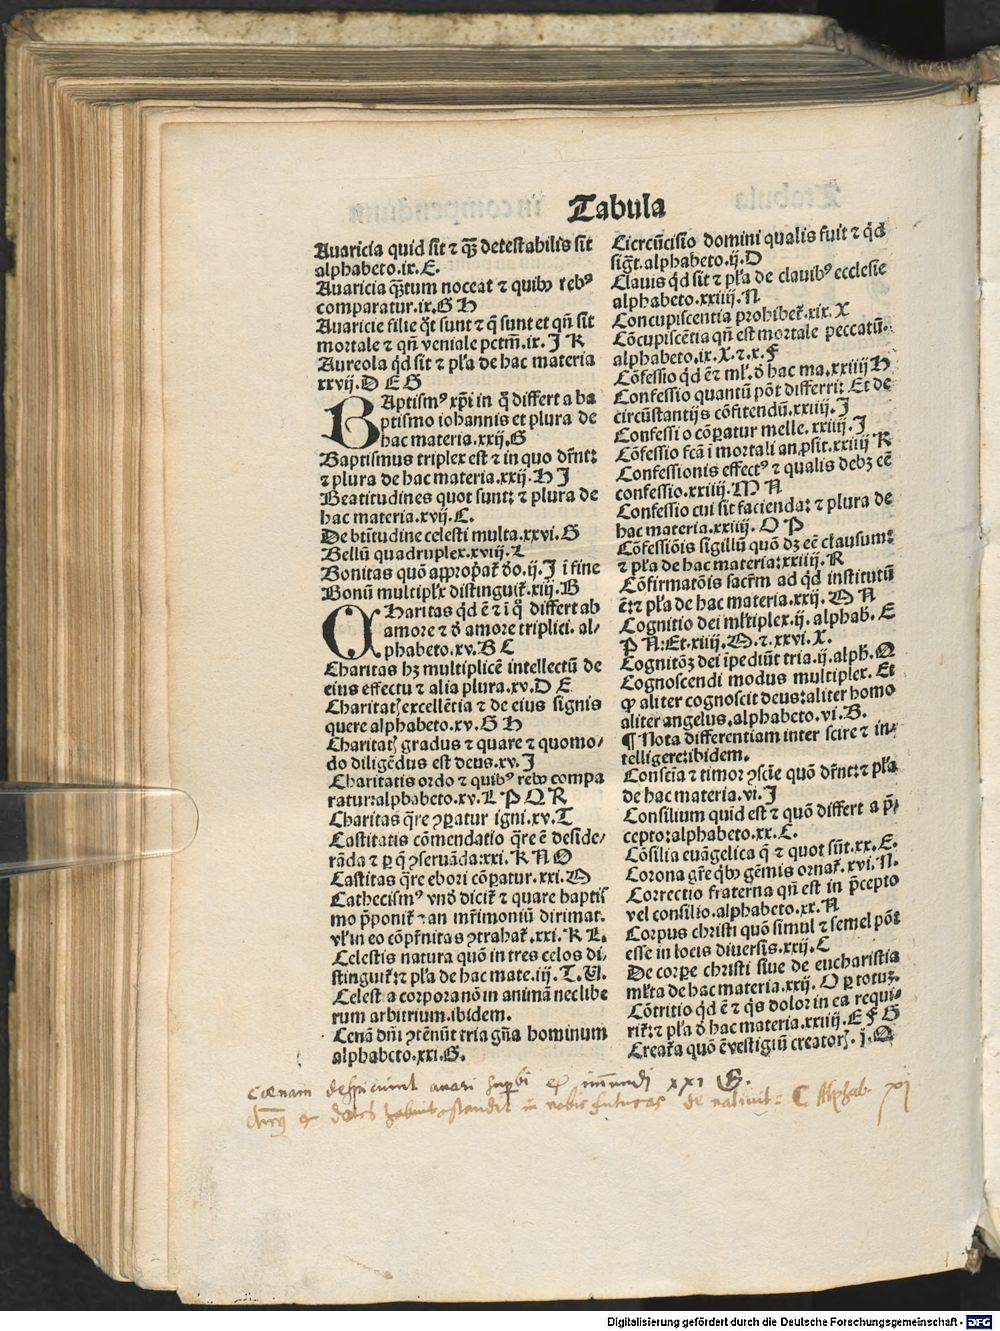 Tabula
Auaricia quid sit ⁊ qʒ̃ detestabilis sit
alphabeto.ix.E.
Auaricia qʒ̃tum noceat ⁊ quibꝰ rebꝰ
comparatur.ix.G H
Auaricie filie q̃t sunt ⁊ q̃ sunt et qñ sit
mortale ⁊ qñ veniale pctm̃.ix. J K
Aureola q̃d sit ⁊ pl̃a de hac materia
xxvij.D E G
BAptismꝰ xp̃i in q̃ differt a ba
ptismo iohannis et plura de
hac materia.xxij.G
Baptismus triplex est ⁊ in quo dr̃nt:
⁊ plura de hac materia.xxij.H J
Beatitudines quot sunt: ⁊ plura de
hac materia.xvij.C.
De btĩtudine celesti multa.xxvi.G
Bellũ quadruplex.xviij.L
Bonitas quõ appropat̃ ðo.ij.J ĩ fine
Bonũ multipl̃x distinguit̃.xiij.B
CHaritas q̃d ẽ ⁊ ĩ q̃ differt ab
amore ⁊ ð amore triplici. al⸗
phabeto.xv.B C
Charitas hʒ multiplicẽ intellectũ de
eius effectu ⁊ alia plura.xv.D E
Charitatꝭ excellẽtia ⁊ de eius signis
quere alphabeto.xv.G H
Charitatꝭ gradus ⁊ quare ⁊ quomo⸗
do diligẽdus est deus.xv.J
Charitatis ordo ⁊ quibꝰ rebꝰ compa
ratur:alphabeto.xv.L P Q R
Charitas q̃re ꝯparatur igni.xv.T
Castitatis cõmendatio q̃re ẽ deside⸗
rãda ⁊ ꝑ q̃ ꝯseruãda:xxi.K N O
Castitas q̃re ebori cõparatur.xxi.M
Cathecismꝰ vnð dicit̃ ⁊ quare baptis
mo p̃ponit̃ ⁊ an mr̃imoniũ dirimat.
vl̃ in eo cõp̃nitas ꝯtrahat̃.xxi.K L.
Celestis natura quõ in tres celos di⸗
stinguit̃:⁊ pl̃a de hac mate.iij.T.V.
Celestia corpora nõ in animã nec libe
rum arbitrium.ibidem.
Cenã dñi ꝯtẽnũt tria gña hominum
alphabeto.xxi.G.
Circũcisio domini qualis fuit ⁊ q̃d
sigt̃.alphabeto.ij.D
Clauis q̃d sit ⁊ pl̃a de clauibꝰ ecclesie
alphabeto.xxiiij.N
Concupiscentia prohibet̃.xix.X
Cõcupiscẽtia qñ est mortale peccatũ.
alphabeto.ix.X.⁊.x.F
Cõfessio q̃d ẽ ⁊ ml̃. ð hac ma.xxiiij H
Confessio quantũ põt differri: Et de
circũstantijs cõfitendũ.xxiiij.J
Confessio cõparatur melle.xxiiij.J
Cõfessio fcã ĩ mortali an ꝓsit.xxiiij K
Confessionis effectꝰ ⁊ qualis debʒ eẽ
confessio.xxiiij.M N
Confessio cui sit facienda: ⁊ plura de
hac materia.xxiiij. O P
Cõfessiõis sigillũ quõ dʒ eẽ clausum:
⁊ pl̃a de hac materia:xxiiij.R
Cõfirmatõis sacrm̃ ad q̃d institutũ
ẽ:⁊ pl̃a de hac materia.xxij. M N
Cognitio dei ml̃tiplex.ij. alphab. E
P N:Et.xiiij.M.⁊.xxvi.X.
Cognitõʒ dei ĩpediũt tria.ij.alph̃.Q
Cognoscendi modus multiplex. Et
ꝙ aliter cognoscit deus:aliter homo
aliter angelus.alphabeto.vi.B.
¶ Nota differentiam inter scire ⁊ in⸗
telligere:ibidem.
Consciẽa ⁊ timor ꝯsciẽ quõ dr̃nt:⁊ pl̃a
de hac materia.vi.J
Consilium quid est ⁊ quõ differt a p̃⸗
cepto:alphabeto.xx.C.
Cõsilia euãgelica q̃ ⁊ quot sũt.xx.E.
Corona gr̃e q̃bꝰ gẽmis ornat̃.xvi.N.
Correctio fraterna qñ est in p̃cepto
vel consilio.alphabeto.xx.N
Corpus christi quõ simul ⁊ semel põt
esse in locis diuersis.xxij.C
De corpore christi siue de eucharistia
ml̃ta de hac materia.xxij. O ꝑ totuʒ.
Cõtritio q̃d ẽ ⁊ q̃s dolor in ea requi⸗
rit̃:⁊ pl̃a ð hac materia.xxiiij.E F G
Creata quõ ẽ vestigiũ creatorꝭ.j.Q
coenam despiciunt auari superbi et immundi xxi G.
dotes in nobis futuras de natiuit: C Alphab. xi
Digitalisierung gefördert durch die Deutsche Forschungsgemeinschaft - DFG